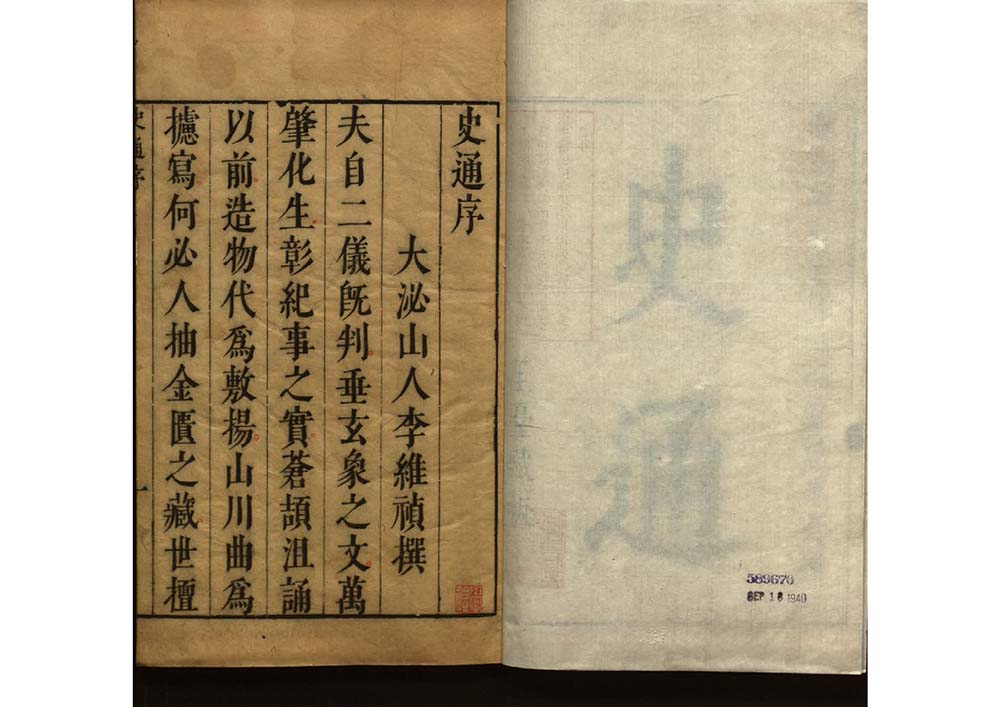 史通
589670
SEP 16 1940
史通序
大泌山人李維禎撰
夫自二儀旣判垂玄象之文萬
肇化生彰紀事之實蒼頡沮誦
以前造物代爲敷揚山川曲爲
攄寫何必人抽金匱之藏世擅
史通序